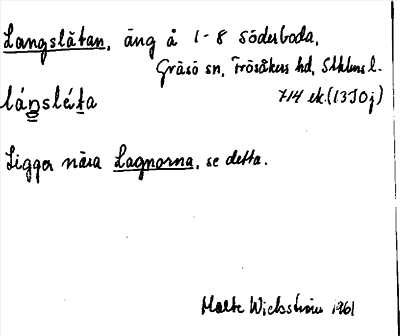 Långslåtan, äng å 1-8 Söderboda,
Gräsö sn, Frösåkers hd, Sthlms l.
lánsléta 714 ek. (13J0j)
Ligger nära Lagnorna, se detta.
Malte Wickström 1961